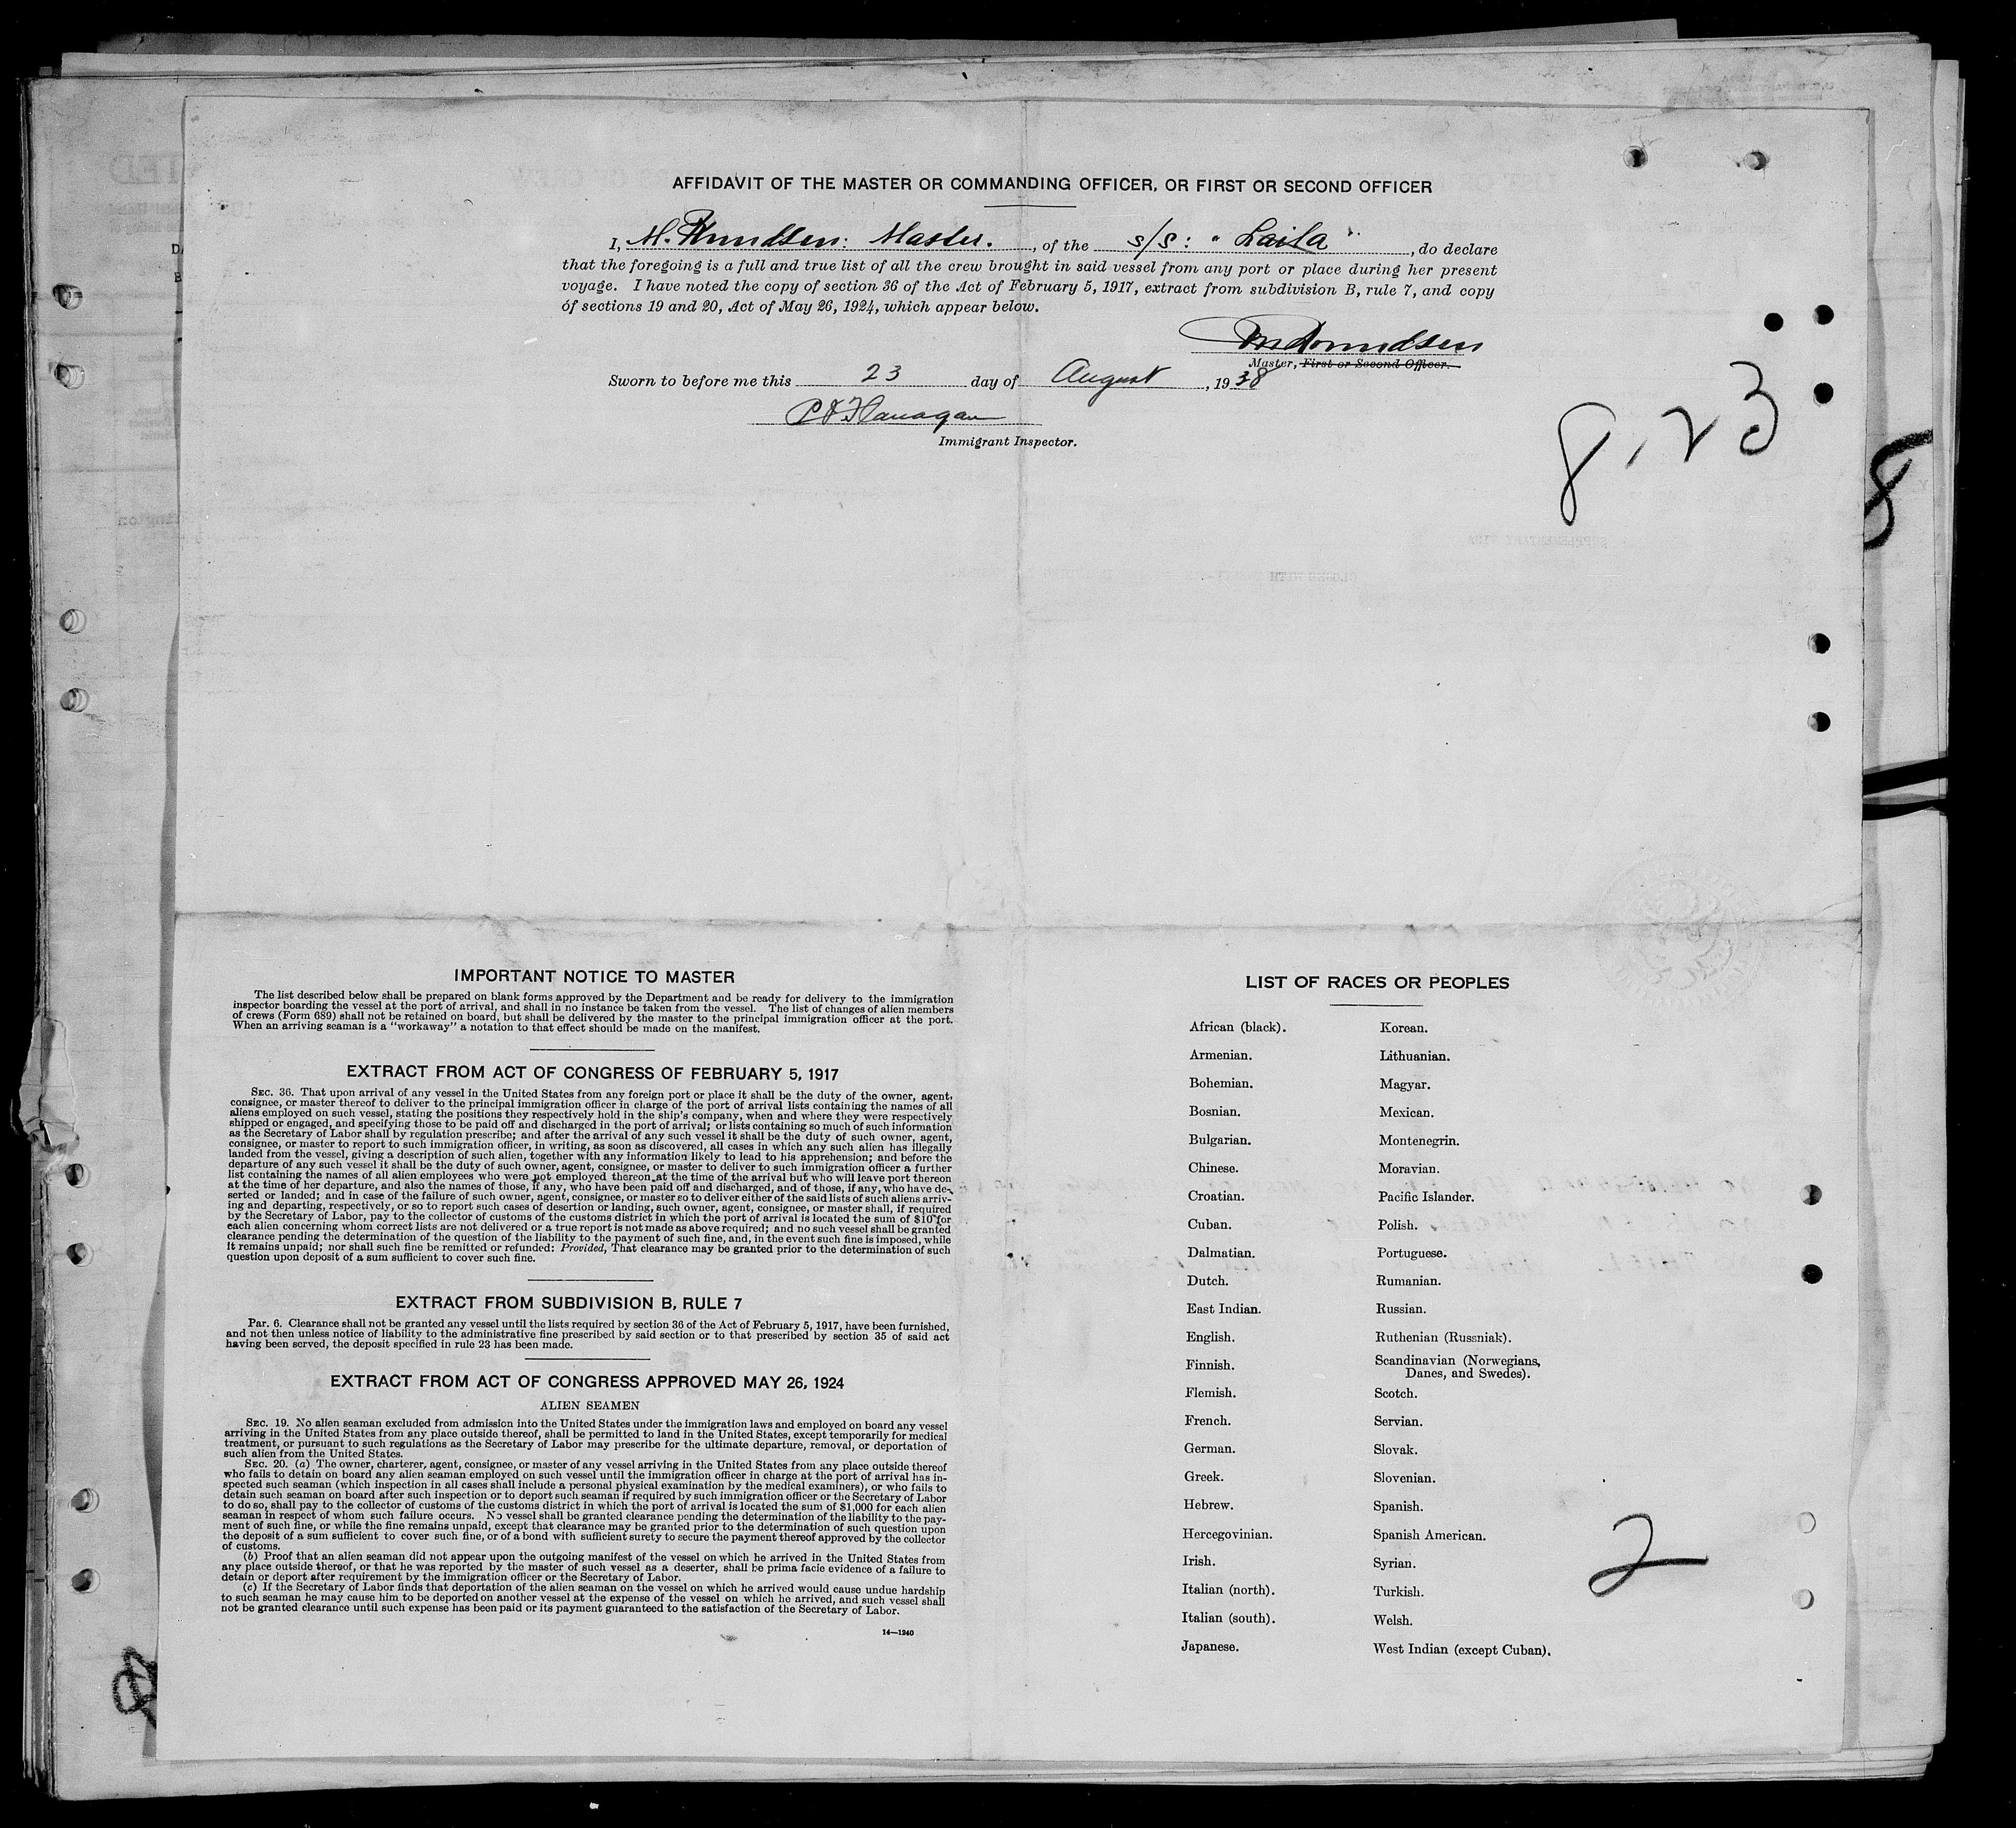 AFFIDAVIT OF THE MASTER OR COMMANDING OFFICER, OR FIRST OR SECOND OFFICER
I, M. Knudsen: Master. , of the s/s: "Laila" , do declare
that the foregoing is a full and true list of all the crew brought in said vessel from any port or place during her present
voyage. I have noted the copy of section 36 of the Act of February 5, 1917, extract from subdivision B, rule 7, and copy
of sections 19 and 20, Act of May 26, 1924, which appear below.
M Knudsen
Master, First or Second Officer.
Sworn to before me this 23 day of August , 1938
P J Flanagan
Immigrant Inspector.
8,23
8
IMPORTANT NOTICE TO MASTER
The list described below shall be prepared on blank forms approved by the Department and be ready for delivery to the immigration
inspector boarding the vessel at the port of arrival, and shall in no instance be taken from the vessel. The list of changes of alien members
of crews (Form 689) shall not be retained on board, but shall be delivered by the master to the principal immigration officer at the port.
When an arriving seaman is a "workaway" a notation to that effect should be made on the manifest.
EXTRACT FROM ACT OF CONGRESS OF FEBRUARY 5, 1917
SEC. 36. That upon arrival of any vessel in the United States from any foreign port or place it shall be the duty of the owner, agent,
consignee, or master thereof to deliver to the principal immigration officer in charge of the port of arrival lists containing the names of all
aliens employed on such vessel, stating the positions they respectively hold in the ship's company, when and where they were respectively
shipped or engaged, and specifying those to be paid off and discharged in the port of arrival; or lists containing so much of such information
as the Secretary of Labor shall by regulation prescribe; and after the arrival of any such vessel it shall be the duty of such owner, agent,
consignee, or master to report to such immigration officer, in writing, as soon as discovered, all cases in which any such alien has illegally
landed from the vessel, giving a description of such alien, together with any information likely to lead to his apprehension; and before the
departure of any such vessel it shall be the duty of such owner, agent, consignee, or master to deliver to such immigration officer a further
list containing the names of all alien employees who were not employed thereon at the time of the arrival but who will leave port thereon
at the time of her departure, and also the names of those, if any, who have been paid off and discharged, and of those, if any, who have de-
serted or landed; and in case of the failure of such owner, agent, consignee, or master so to deliver either of the said lists of such aliens arriv-
ing and departing, respectively, or so to report such cases of desertion or landing, such owner, agent, consignee, or master shall, if required
by the Secretary of Labor, pay to the collector of customs of the customs district in which the port of arrival is located the sum of $10 for
each alien concerning whom correct lists are not delivered or a true report is not made as above required; and no such vessel shall be granted
clearance pending the determination of the question of the liability to the payment of such fine, and, in the event such fine is imposed, while
it remains unpaid; nor shall such fine be remitted or refunded: Provided, That clearance may be granted prior to the determination of such
question upon deposit of a sum sufficient to cover such fine.
EXTRACT FROM SUBDIVISION B, RULE 7
Par. 6. Clearance shall not be granted any vessel until the lists required by section 36 of the Act of February 5, 1917, have been furnished,
and not then unless notice of liability to the administrative fine prescribed by said section or to that prescribed by section 35 of said act
having been served, the deposit specified in rule 23 has been made.
EXTRACT FROM ACT OF CONGRESS APPROVED MAY 26, 1924
ALIEN SEAMEN
SEC. 19. No alien seaman excluded from admission into the United States under the immigration laws and employed on board any vessel
arriving in the United States from any place outside thereof, shall be permitted to land in the United States, except temporarily for medical
treatment, or pursuant to such regulations as the Secretary of Labor may prescribe for the ultimate departure, removal, or deportation of
such alien from the United States.
SEC. 20. (a) The owner, charterer, agent, consignee, or master of any vessel arriving in the United States from any place outside thereof
who fails to detain on board any alien seaman employed on such vessel until the immigration officer in charge at the port of arrival has in-
spected such seaman (which inspection in all cases shall include a personal physical examination by the medical examiners), or who fails to
detain such seaman on board after such inspection or to deport such seaman if required by such immigration officer or the Secretary of Labor
to do so, shall pay to the collector of customs of the customs district in which the port of arrival is located the sum of $1,000 for each alien
seaman in respect of whom such failure occurs. No vessel shall be granted clearance pending the determination of the liability to the pay-
ment of such fine, or while the fine remains unpaid, except that clearance may be granted prior to the determination of such question upon
the deposit of a sum sufficient to cover such fine, or of a bond with sufficient surety to secure the payment thereof approved by the collector
of customs.
(b) Proof that an alien seaman did not appear upon the outgoing manifest of the vessel on which he arrived in the United States from
any place outside thereof, or that he was reported by the master of such vessel as a deserter, shall be prima facie evidence of a failure to
detain or deport after requirement by the immigration officer or the Secretary of Labor.
(c) If the Secretary of Labor finds that deportation of the alien seaman on the vessel on which he arrived would cause undue hardship
to such seaman he may cause him to be deported on another vessel at the expense of the vessel on which he arrived, and such vessel shall
not be granted clearance until such expense has been paid or its payment guaranteed to the satisfaction of the Secretary of Labor.
14—1240
LIST OF RACES OR PEOPLES
African (black).
Armenian.
Bohemian.
Bosnian.
Bulgarian.
Chinese.
Croatian.
Cuban.
Dalmatian.
Dutch.
East Indian.
English.
Finnish.
Flemish.
French.
German.
Greek.
Hebrew.
Hercegovinian.
Irish.
Italian (north).
Italian (south).
Japanese.
Korean.
Lithuanian.
Magyar.
Mexican.
Montenegrin.
Moravian.
Pacific Islander.
Polish.
Portuguese.
Rumanian.
Russian.
Ruthenian (Russniak).
Scandinavian (Norwegians,
Danes, and Swedes).
Scotch.
Servian.
Slovak.
Slovenian.
Spanish.
Spanish American.
Syrian.
Turkish.
Welsh.
West Indian (except Cuban).
2